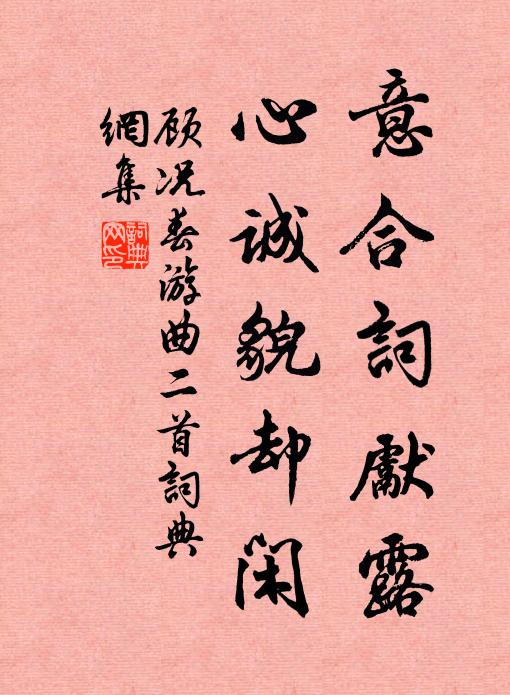 意合詞獻露
心誠貌却閑
顾况春游曲二首詞典
網集
詞典
网印